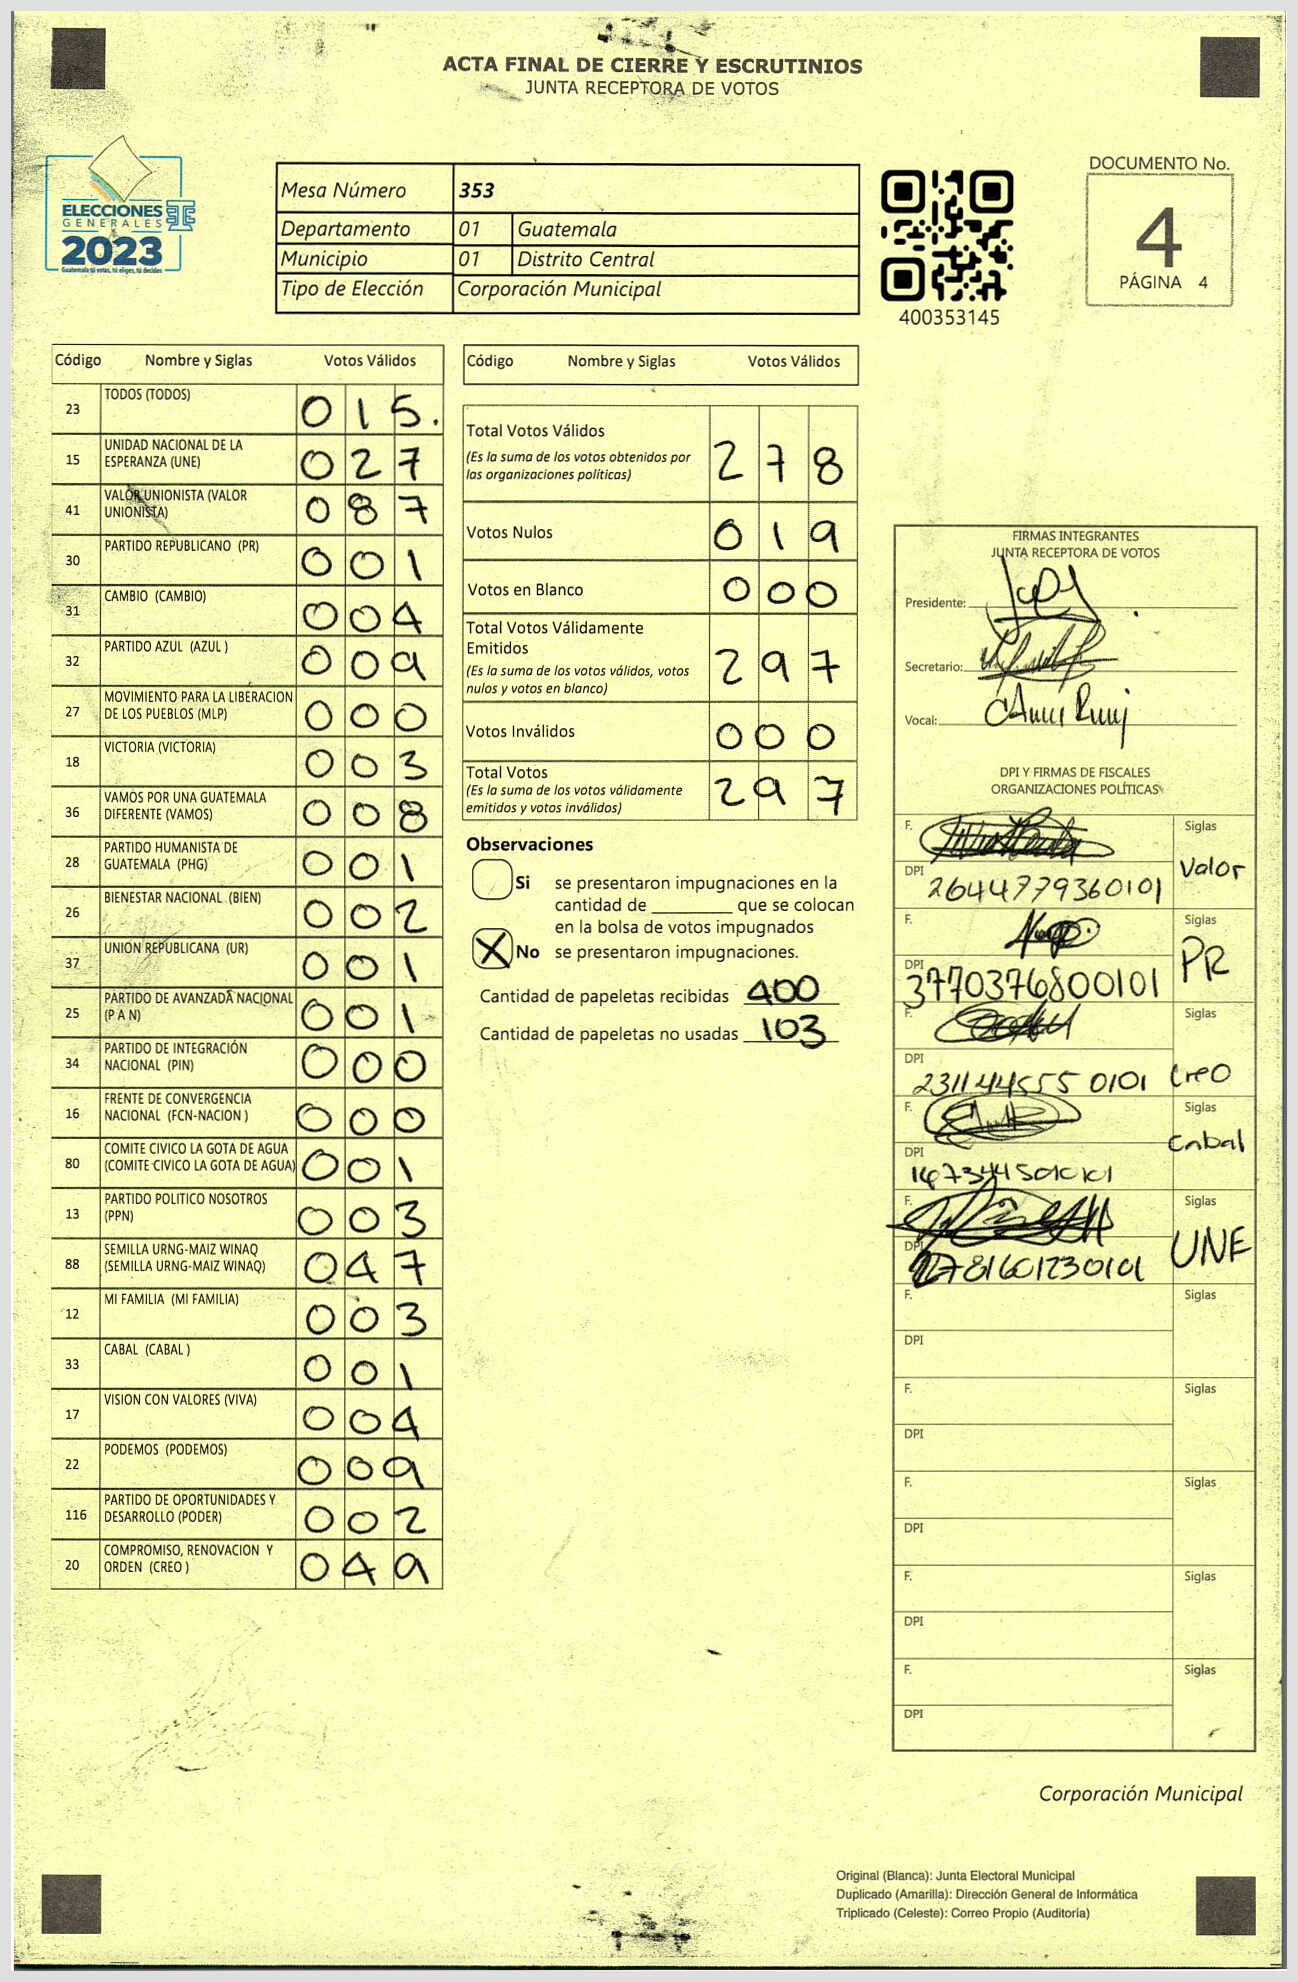 ACTA FINAL DE CIERRE Y ESCRUTINIOS
JUNTA RECEPTORA DE VOTOS
ELECCIONES
GENERALES
2023
Guatemala tú votas, tú eliges, tú decides
Mesa Número 353
Departamento 01 Guatemala
Municipio 01 Distrito Central
Tipo de Elección Corporación Municipal
400353145
DOCUMENTO No.
4
PÁGINA 4
Código Nombre y Siglas Votos Válidos
23 TODOS (TODOS) 0 1 5.
15 UNIDAD NACIONAL DE LA
ESPERANZA (UNE) 0 2 7
41 VALOR UNIONISTA (VALOR
UNIONISTA) 0 8 7
30 PARTIDO REPUBLICANO (PR) 0 0 1
31 CAMBIO (CAMBIO) 0 0 4
32 PARTIDO AZUL (AZUL ) 0 0 9
27 MOVIMIENTO PARA LA LIBERACION
DE LOS PUEBLOS (MLP) 0 0 0
18 VICTORIA (VICTORIA) 0 0 3
36 VAMOS POR UNA GUATEMALA
DIFERENTE (VAMOS) 0 0 8
28 PARTIDO HUMANISTA DE
GUATEMALA (PHG) 0 0 1
26 BIENESTAR NACIONAL (BIEN) 0 0 2
37 UNION REPUBLICANA (UR) 0 0 1
25 PARTIDO DE AVANZADA NACIONAL
(P A N) 0 0 1
34 PARTIDO DE INTEGRACIÓN
NACIONAL (PIN) 0 0 0
16 FRENTE DE CONVERGENCIA
NACIONAL (FCN-NACION ) 0 0 0
80 COMITE CIVICO LA GOTA DE AGUA
(COMITE CIVICO LA GOTA DE AGUA) 0 0 1
13 PARTIDO POLITICO NOSOTROS
(PPN) 0 0 3
88 SEMILLA URNG-MAIZ WINAQ
(SEMILLA URNG-MAIZ WINAQ) 0 4 7
12 MI FAMILIA (MI FAMILIA) 0 0 3
33 CABAL (CABAL ) 0 0 1
17 VISION CON VALORES (VIVA) 0 0 4
22 PODEMOS (PODEMOS) 0 0 9
116 PARTIDO DE OPORTUNIDADES Y
DESARROLLO (PODER) 0 0 2
20 COMPROMISO, RENOVACION Y
ORDEN (CREO ) 0 4 9
Código Nombre y Siglas Votos Válidos
Total Votos Válidos
(Es la suma de los votos obtenidos por
las organizaciones políticas) 2 7 8
Votos Nulos 0 1 9
Votos en Blanco 0 0 0
Total Votos Válidamente
Emitidos
(Es la suma de los votos válidos, votos
nulos y votos en blanco) 2 9 7
Votos Inválidos 0 0 0
Total Votos
(Es la suma de los votos válidamente
emitidos y votos inválidos) 2 9 7
Observaciones
Si se presentaron impugnaciones en la
cantidad de ________ que se colocan
en la bolsa de votos impugnados
X No se presentaron impugnaciones.
Cantidad de papeletas recibidas 400
Cantidad de papeletas no usadas 103
FIRMAS INTEGRANTES
JUNTA RECEPTORA DE VOTOS
Presidente:
Secretario:
Vocal:
DPI Y FIRMAS DE FISCALES
ORGANIZACIONES POLÍTICAS
F. Siglas
DPI 2644779360101 Valor
F. Siglas
DPI 3770376800101 PR
F. Siglas
DPI 231144555 0101 Creo
F. Siglas
DPI Cabal
F. Siglas
DPI 2781601230101 UNE
F. Siglas
DPI
F. Siglas
DPI
F. Siglas
DPI
F. Siglas
DPI
F. Siglas
DPI
Corporación Municipal
Original (Blanca): Junta Electoral Municipal
Duplicado (Amarilla): Dirección General de Informática
Triplicado (Celeste): Correo Propio (Auditoría)